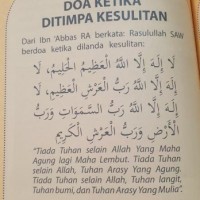 DOA KETIKA
DITIMPA KESULITAN
Dari Ibn 'Abbas RA berkata: Rasulullah SAW
berdoa ketika dilanda kesulitan:
لَا إِلَهَ إِلَّا اللَّهُ الْعَظِيمُ الْحَلِيمُ، لَا
إِلَهَ إِلَّا اللَّهُ رَبُّ الْعَرْشِ الْعَظِيمِ، لَا
إِلَهَ إِلَّا اللَّهُ رَبُّ السَّمَوَاتِ وَرَبُّ
الْأَرْضِ وَرَبُّ الْعَرْشِ الْكَرِيمِ
"Tiada Tuhan selain Allah Yang Maha
Agung lagi Maha Lembut. Tiada Tuhan
selain Allah, Tuhan Arasy Yang Agung.
Tiada Tuhan selain Allah, Tuhan langit,
Tuhan bumi, dan Tuhan Arasy Yang Mulia".